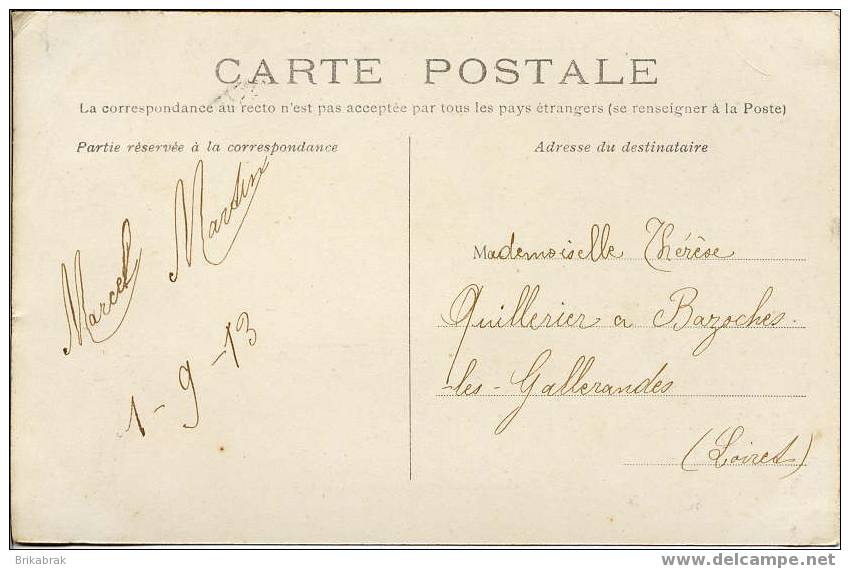 CARTE POSTALE
La correspondance au recto n'est pas acceptée par tous les pays étrangers (se renseigner à la Poste)
Partie réservée à la correspondance
Marcel Martin
1-9-13
Adresse du destinataire
Mademoiselle Thérèse
Quillerier a Bazoches-
-les-Gallerandes
(Loiret)
Brikabrak
www.delcampe.net